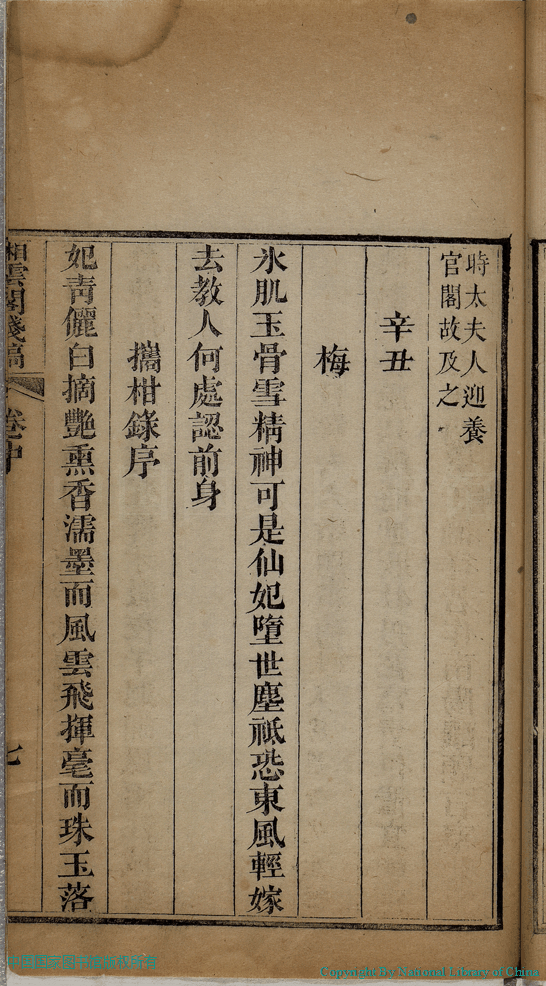 時太夫人迎養
官閣故及之
辛丑
梅
氷肌玉骨雪精神可是仙妃墮世塵祇恐東風輕嫁
去教人何處認前身
攜柑錄序
妃青儷白摘艷熏香濡墨而風雲飛揮毫而珠玉落
相雲閣殘稿 卷中 七
Copyright by National Library of China